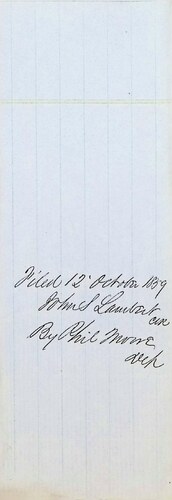 Filed 12 October 1859
John S Lambert
Clk
By Phil Moore
dep